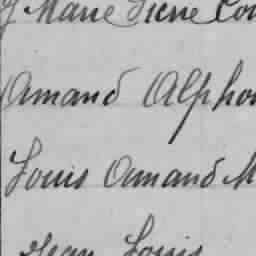 Marie Pierre Cou
Amand Alphon
Louis Amand M
Jean Louis